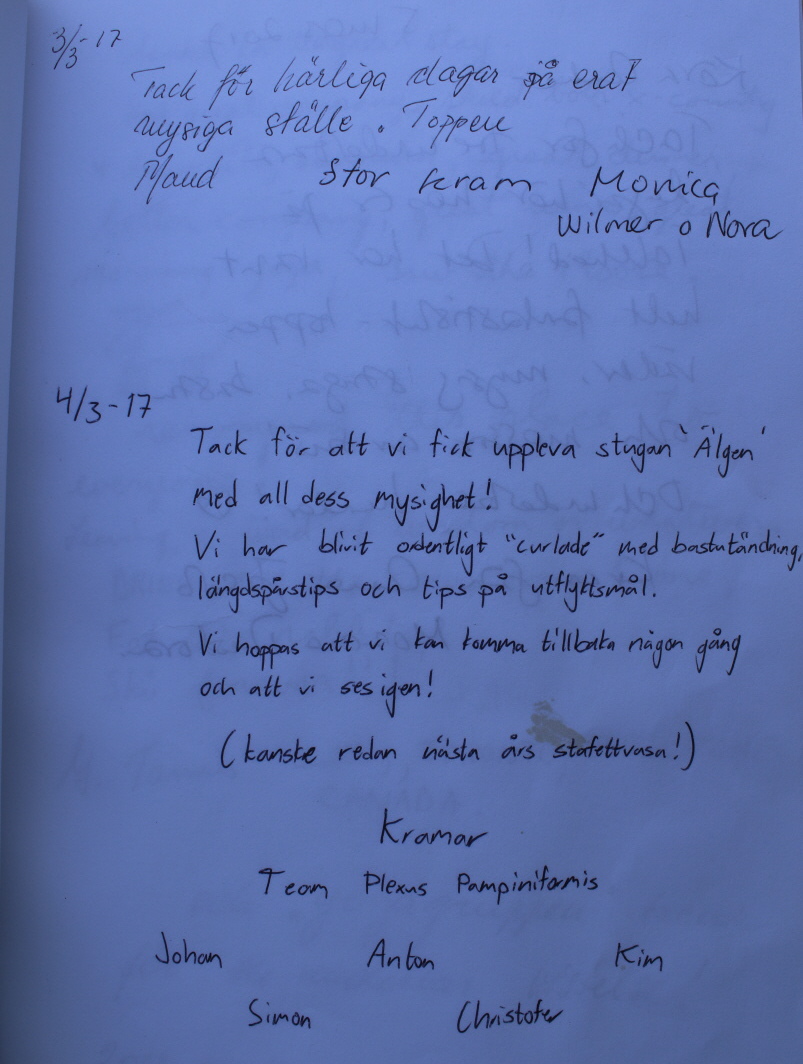 3/3-17
Tack för härliga dagar på erat
mysiga ställe. Toppen
Maud Stor kram Monica
Wilmer o Nora
4/3-17
Tack för att vi fick uppleva stugan 'Älgen'
med all dess mysighet!
Vi har blivit ordentligt "curlade" med bastutändning,
längdspårstips och tips på utflyktsmål.
Vi hoppas att vi kan komma tillbaka någon gång
och att vi ses igen!
(kanske redan nästa års stafettvasa!)
Kramar
Team Plexus Pampiniformis
Johan Anton Kim
Simon Christofer